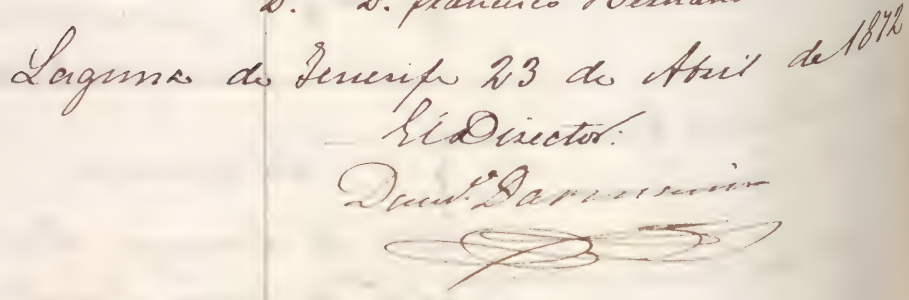 D. D. Francisco
Laguna de Tenerife 23 de Abril de 1872
El Director: